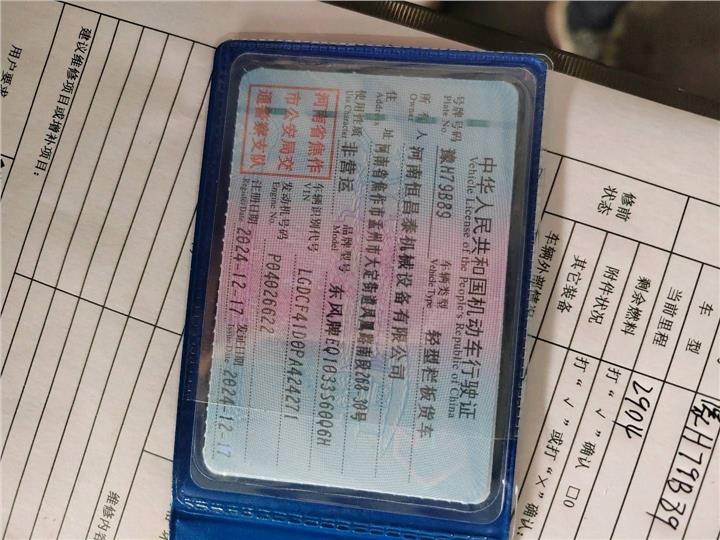 中华人民共和国机动车行驶证
Vehicle License of the People's Republic of China
号牌号码 豫H79B89 车辆类型 轻型栏板货车
Plate No. Vehicle Type
所有人 河南恒昌泰机械设备有限公司
Owner
住址 河南省焦作市孟州市大定街道凤凰路南段268-30号
Address
使用性质 非营运 品牌型号 东风牌EQ1033S60Q6H
Use Character Model
河南省焦作
市公安局交
通警察支队
车辆识别代号 LGDCF41D0PA424271
VIN
发动机号码 P04026622
Engine No.
注册日期 2024-12-17 发证日期 2024-12-17
Register Date Issue Date
车型
H79B89
当前里程
2904
修前
状态
剩余燃料
附件状况 打“√”确认 □0
其它装备 打“√”或打“×”确认:
建议维修项目或增补项目:
用户要求
维修内容